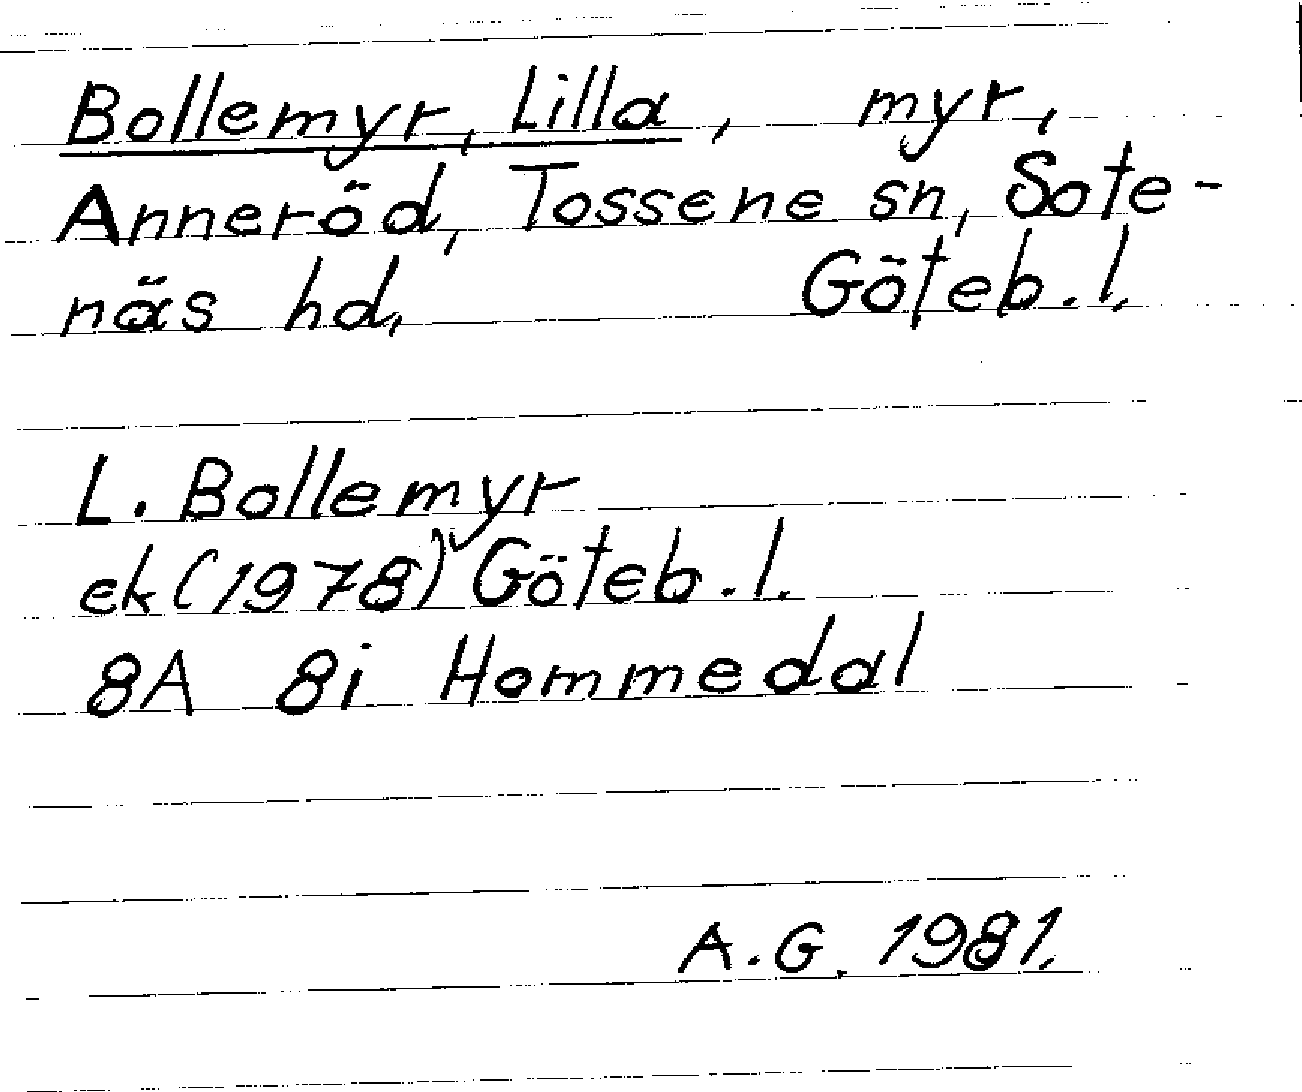 Bollemyr, Lilla, myr,
Anneröd, Tossene sn, Sote-
näs hd, Göteb. l.
L. Bollemyr
ek (1978) Göteb. l.
8A 8i Hommedal
A.G. 1981.